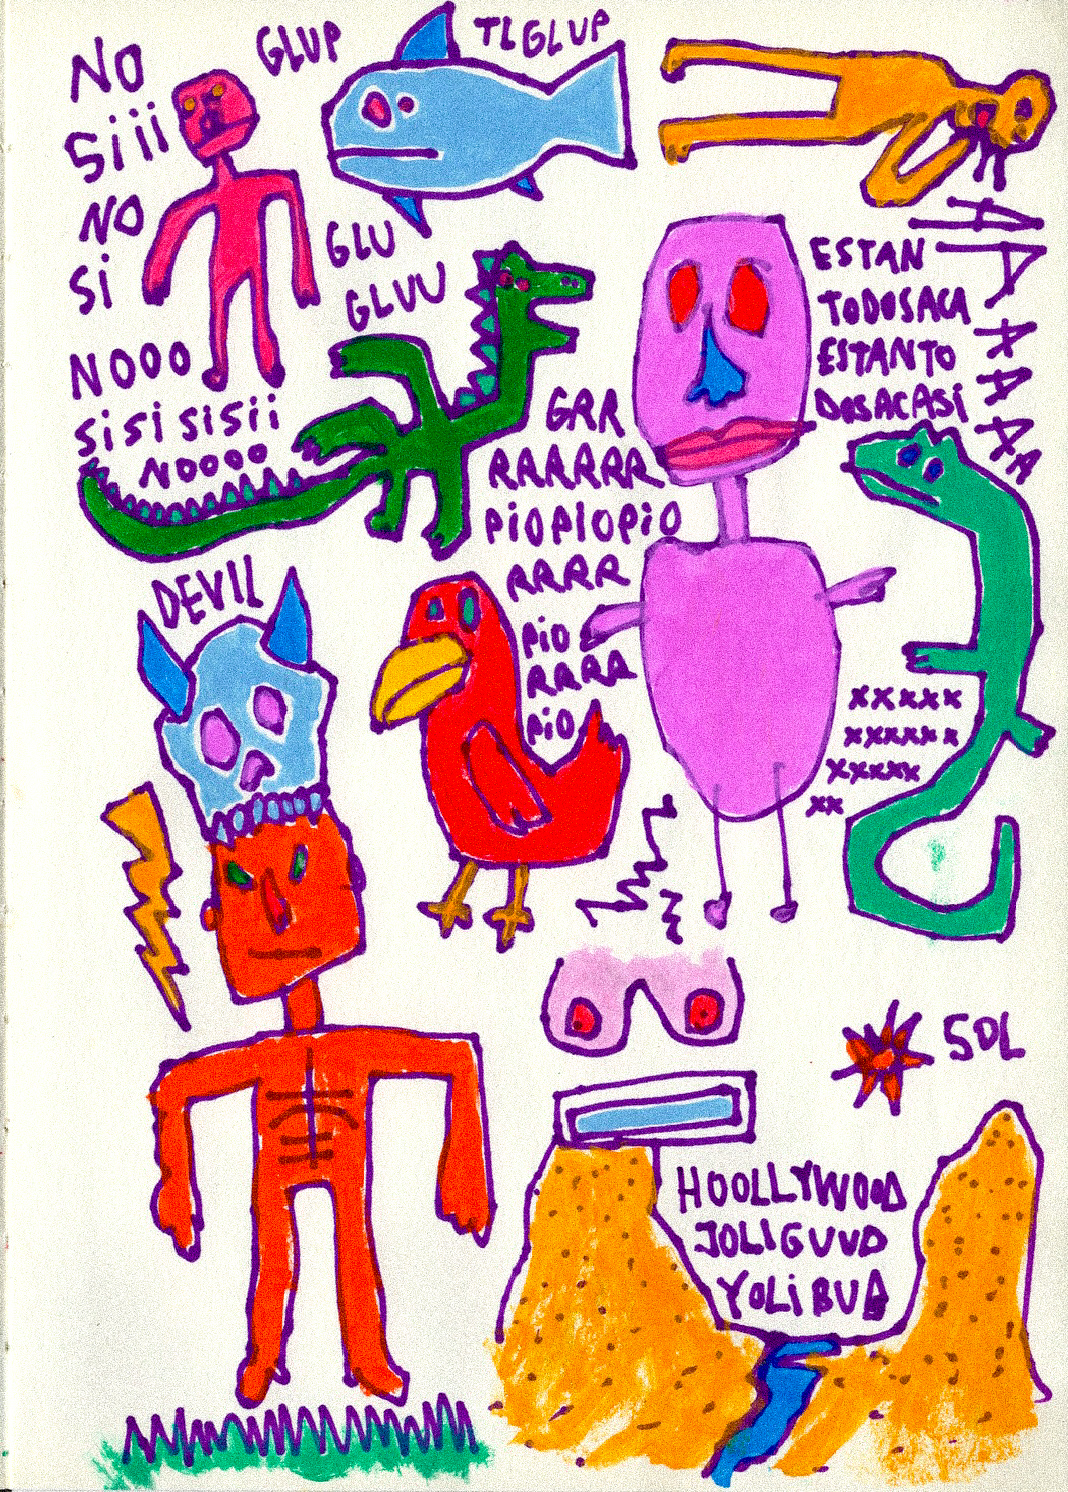 NO
Siii
NO
Si
NOOO
SiSi SiSii
NOOOO
GLUP
TLGLUP
GLU
GLUU
ESTAN
TODOSACA
ESTANTO
DOSACASi
GRR
RRRRRR
PiOPiOPiO
RRRR
PiO
RRRR
PiO
DEVIL
xxxxx
xxxxxx
xxxxx
xx
SOL
HOOLLYWOOD
JOLIGUUD
YOLiBUD